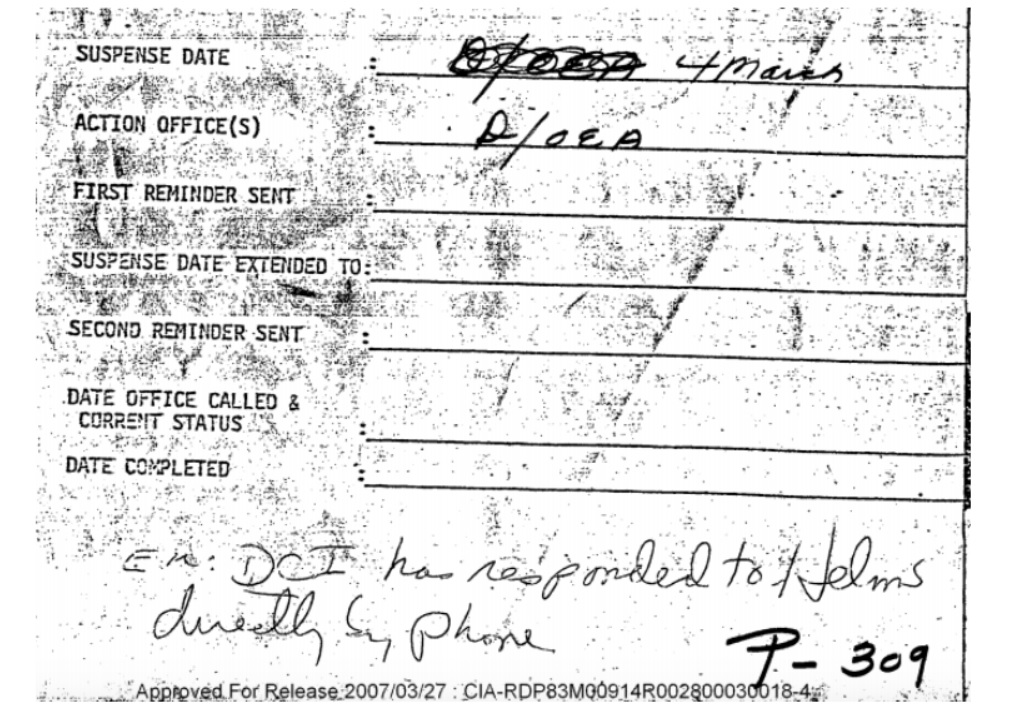 SUSPENSE DATE : D/OEA 4 March
ACTION OFFICE(S) : D/OEA
FIRST REMINDER SENT :
SUSPENSE DATE EXTENDED TO:
SECOND REMINDER SENT :
DATE OFFICE CALLED &
CURRENT STATUS :
DATE COMPLETED :
DCI has responded to Helms
directly by phone
P- 309
Approved For Release 2007/03/27 : CIA-RDP83M00914R002800030018-4